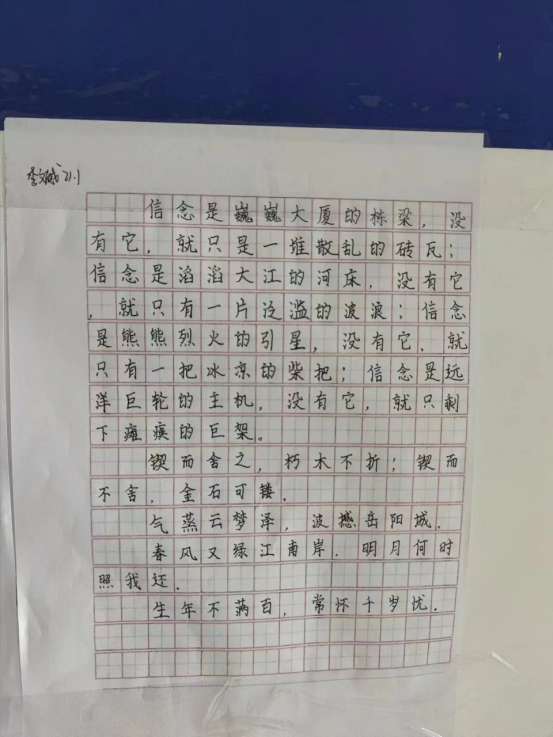 李文 21.1
信念是巍巍大厦的栋梁，没
有它，就只是一堆散乱的砖瓦；
信念是滔滔大江的河床，没有它
，就只有一片泛滥的波浪；信念
是熊熊烈火的引星，没有它，就
只有一把冰凉的柴把；信念是远
洋巨轮的主机，没有它，就只剩
下瘫痪的巨架。
锲而舍之，朽木不折；锲而
不舍，金石可镂．
气蒸云梦泽，波撼岳阳城．
春风又绿江南岸．明月何时
照我还．
生年不满百，常怀千岁忧．